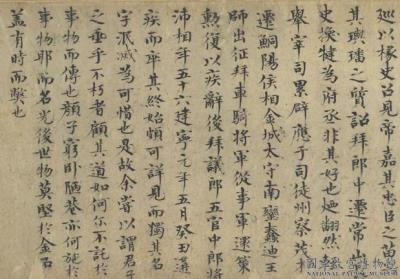 巡以掾史召見帝嘉其忠臣之苗
其璵璠之質詔拜郎中遷常
史換犍為府丞非其好也迺翩然
舉宰司累辟應于司徒州察茂才
遷鮦陽侯相金城太守南蠻蠢迪王
師出征拜車騎將軍從事軍還策
勳復以疾辭後拜議郎五官中郎將
沛相年五十六建寧元年五月癸丑遘
疾而卒其終始頗可詳見而獨其名
字泯滅為可惜也是故余嘗以謂君子
之垂乎不朽者顧其道如何尒不託於
事物而傳也顏子窮卧陋巷亦何施於
事物耶而名光後世物莫堅於金石
盖有時而弊也
國立故宮博物院
NATIONAL PALACE MUSEUM